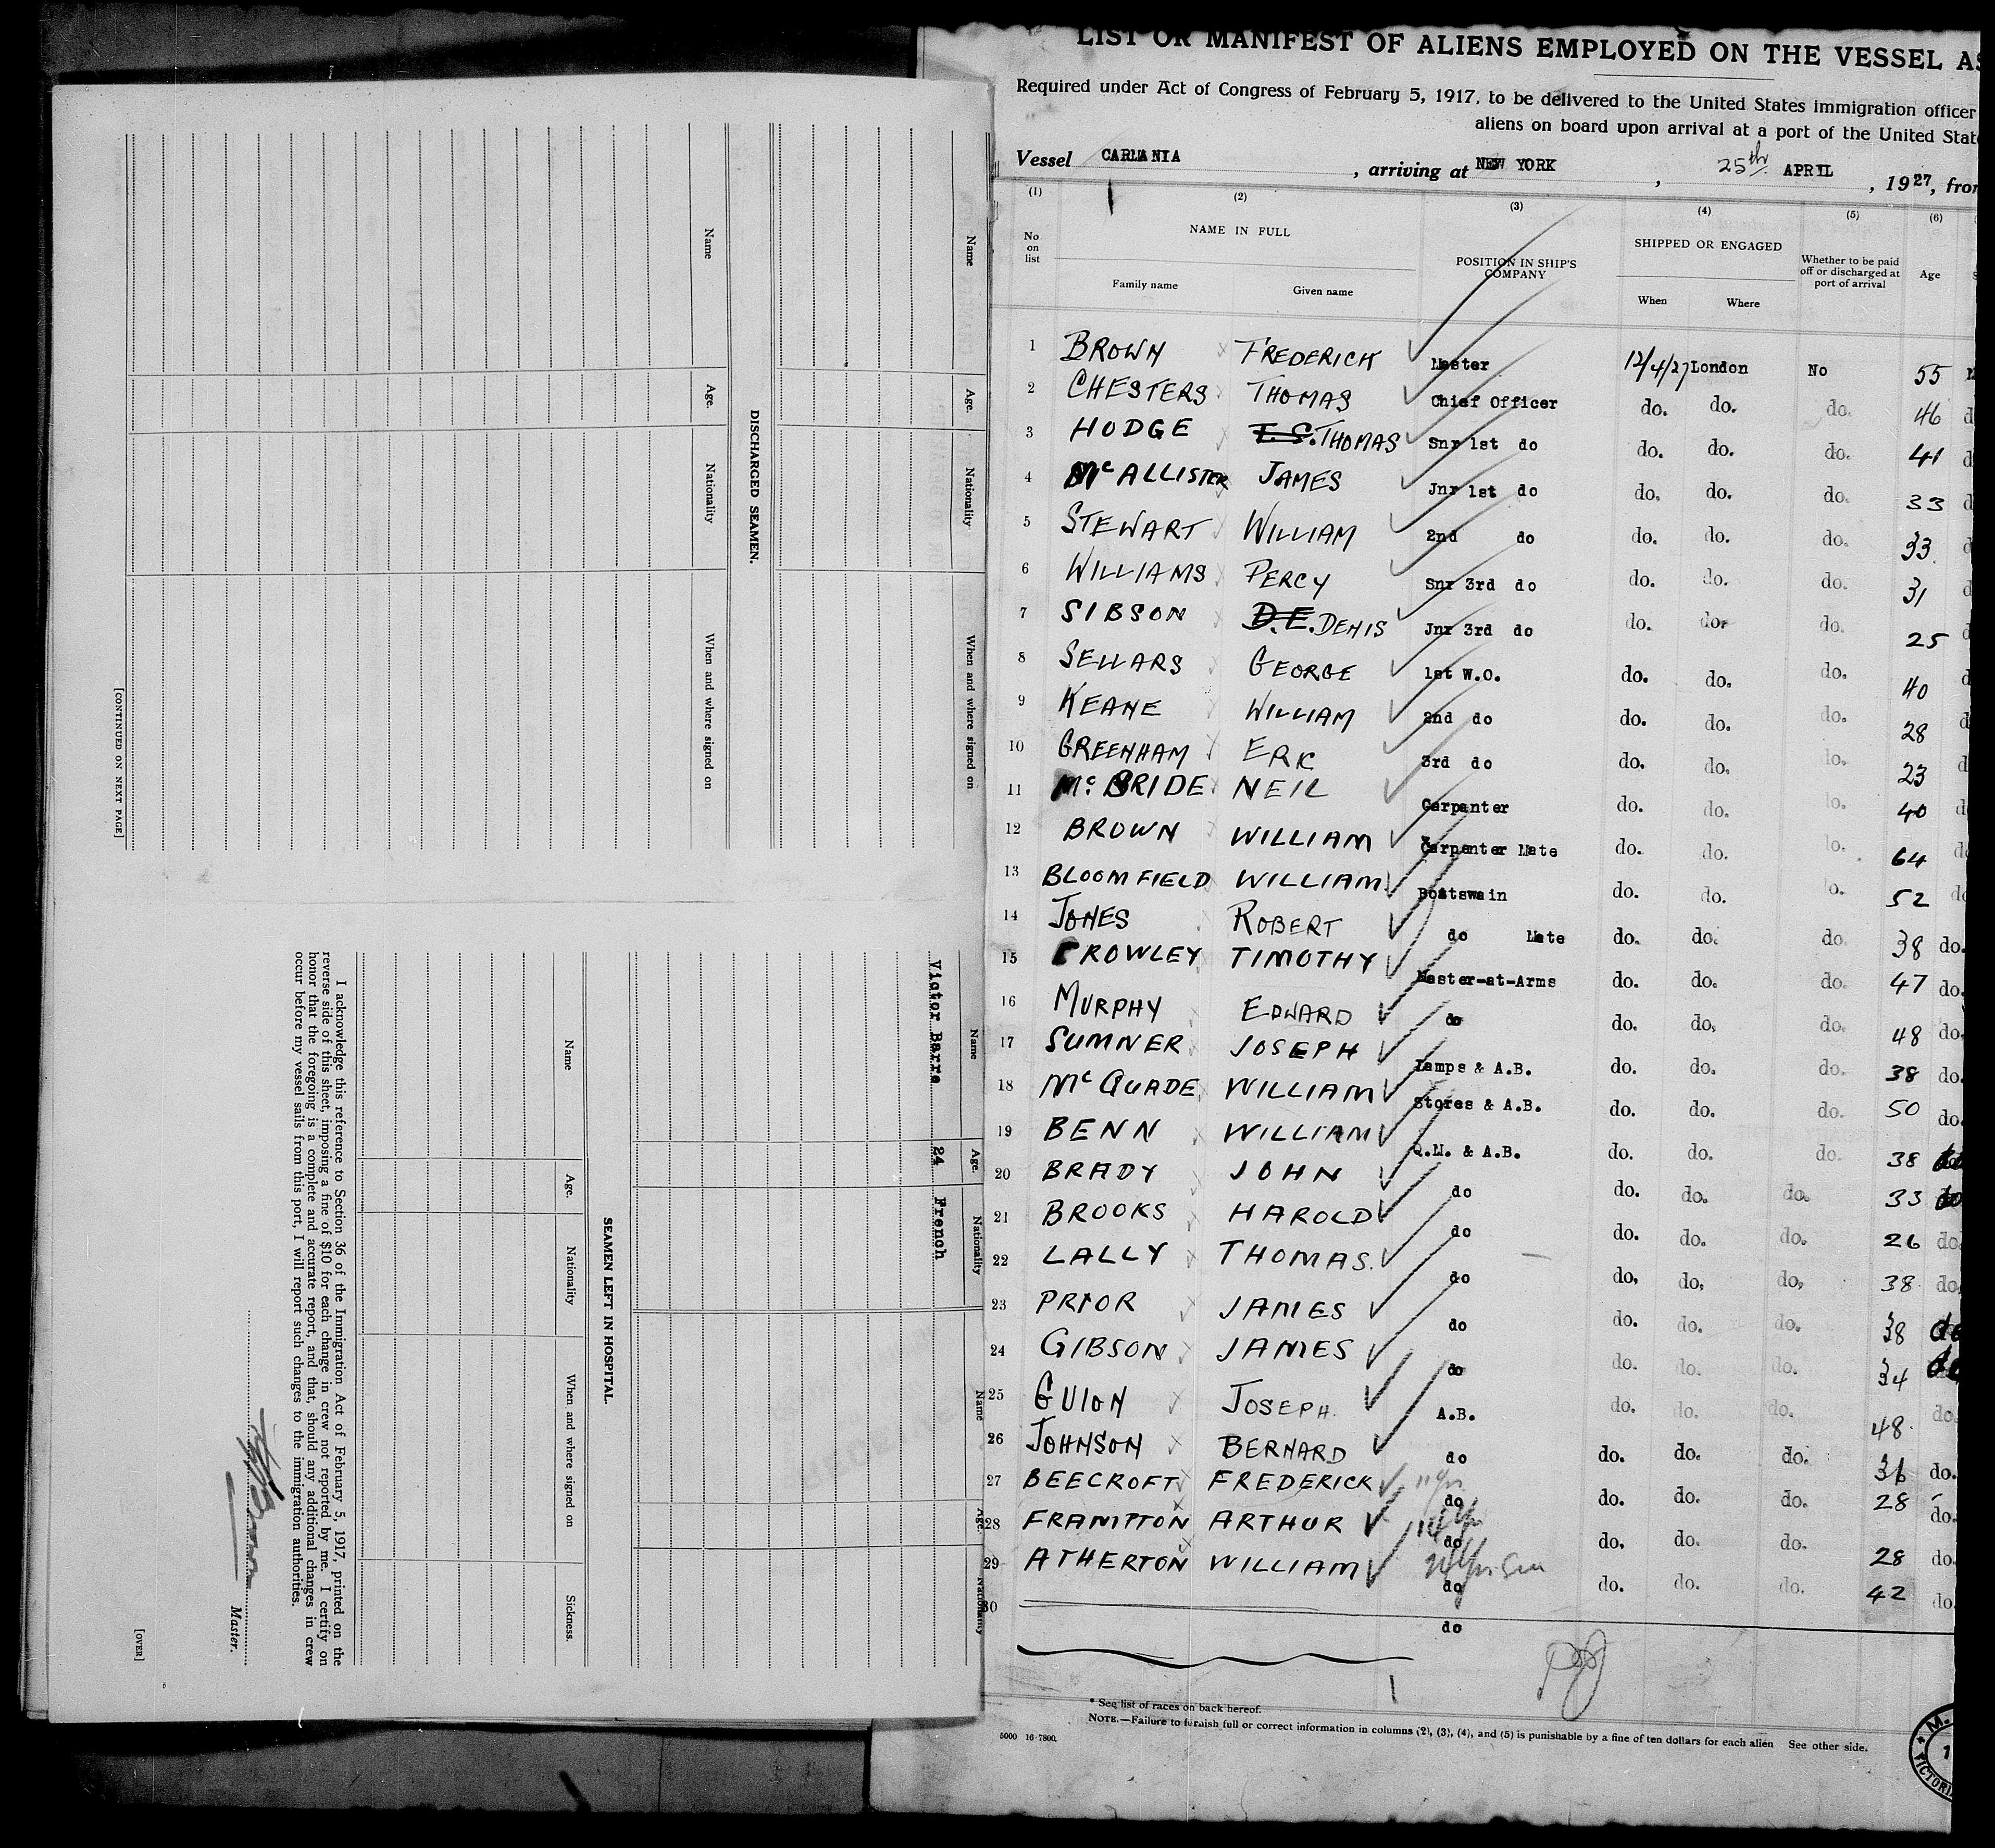 LIST OR MANIFEST OF ALIENS EMPLOYED ON THE VESSEL AS
Required under Act of Congress of February 5, 1917, to be delivered to the United States immigration officer
aliens on board upon arrival at a port of the United State
Vessel CARMANIA, arriving at NEW YORK, 25th APRIL, 1927, from
(1) (2) (3) (4) (5) (6)
No on list NAME IN FULL POSITION IN SHIP'S COMPANY SHIPPED OR ENGAGED Whether to be paid off or discharged at port of arrival Age
Family name Given name When Where
1 BROWN FREDERICK Master 12/4/27 London No 55
2 CHESTERS THOMAS Chief Officer do. do. do. 46
3 HODGE T.S. THOMAS Snr 1st do do. do. do. 41
4 McALLISTER JAMES Jnr 1st do do. do. do. 33
5 STEWART WILLIAM 2nd do do. do. do. 33
6 WILLIAMS PERCY Snr 3rd do do. do. do. 31
7 SIBSON D.E. DENIS Jnr 3rd do do. do. do. 25
8 SELLARS GEORGE 1st W.O. do. do. do. 40
9 KEANE WILLIAM 2nd do do. do. do. 28
10 GREENHAM ERIC 3rd do do. do. do. 23
11 McBRIDE NEIL Carpenter do. do. do. 40
12 BROWN WILLIAM Carpenter Mate do. do. do. 64
13 BLOOMFIELD WILLIAM Boatswain do. do. do. 52
14 JONES ROBERT do Mate do. do. do. 38 do.
15 CROWLEY TIMOTHY Master-at-Arms do. do. do. 47 do.
16 MURPHY EDWARD do do. do. do. 48 do.
17 SUMNER JOSEPH Lamps & A.B. do. do. do. 38 do.
18 McQUADE WILLIAM Stores & A.B. do. do. do. 50 do.
19 BENN WILLIAM Q.M. & A.B. do. do. do. 38 do
20 BRADY JOHN do do. do. do. 33 do
21 BROOKS HAROLD do do. do. do. 26 do.
22 LALLY THOMAS. do do. do. do. 38 do.
23 PRIOR JAMES do do. do. do. 38 do
24 GIBSON JAMES do do. do. do. 34 do
25 GUION JOSEPH. A.B. do. do. do. 48 do.
26 JOHNSON BERNARD do do. do. do. 36 do.
27 BEECROFT FREDERICK do do. do. do. 28 do.
28 FRAMPTON ARTHUR do do. do. do. 28 do.
29 ATHERTON WILLIAM do do. do. do. 42 do.
30 do
* See list of races on back hereof.
NOTE.—Failure to furnish full or correct information in columns (2), (3), (4), and (5) is punishable by a fine of ten dollars for each alien See other side.
5000 16-7800
Name Age. Nationality When and where signed on
DISCHARGED SEAMEN.
Name Age. Nationality When and where signed on
[CONTINUED ON NEXT PAGE]
Name Age. Nationality Name Age. Nationality
Victor Barre 24 French
SEAMEN LEFT IN HOSPITAL.
Name Age. Nationality When and where signed on Sickness.
I acknowledge this reference to Section 36 of the Immigration Act of February 5, 1917, printed on the
reverse side of this sheet, imposing a fine of $10 for each change in crew not reported by me. I certify on
honor that the foregoing is a complete and accurate report, and that, should any additional changes in crew
occur before my vessel sails from this port, I will report such changes to the immigration authorities.
Master.
[OVER]